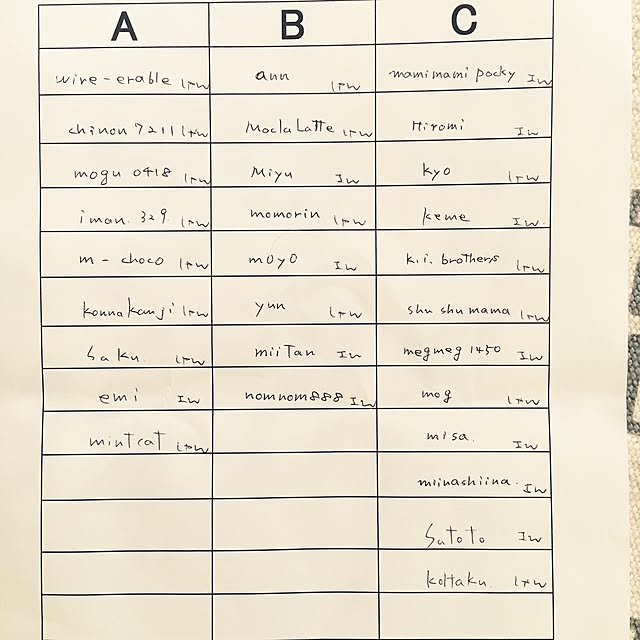 A B C
wire-erable ann mamimami pocky Iw
chinon7211 MoclaLatte Hiromi Iw
mogu 0418 Miyu Iw kyo
iman.329 momorin keme Iw
m-choco moyo Iw k.i. brothers
konnakanji yun shu shu mama
Saku miiTan Iw megmeg1450 Iw
emi Iw nomnom888 Iw mog
mintcat misa. Iw
miinashiina. Iw
Satoto Iw
kottaku